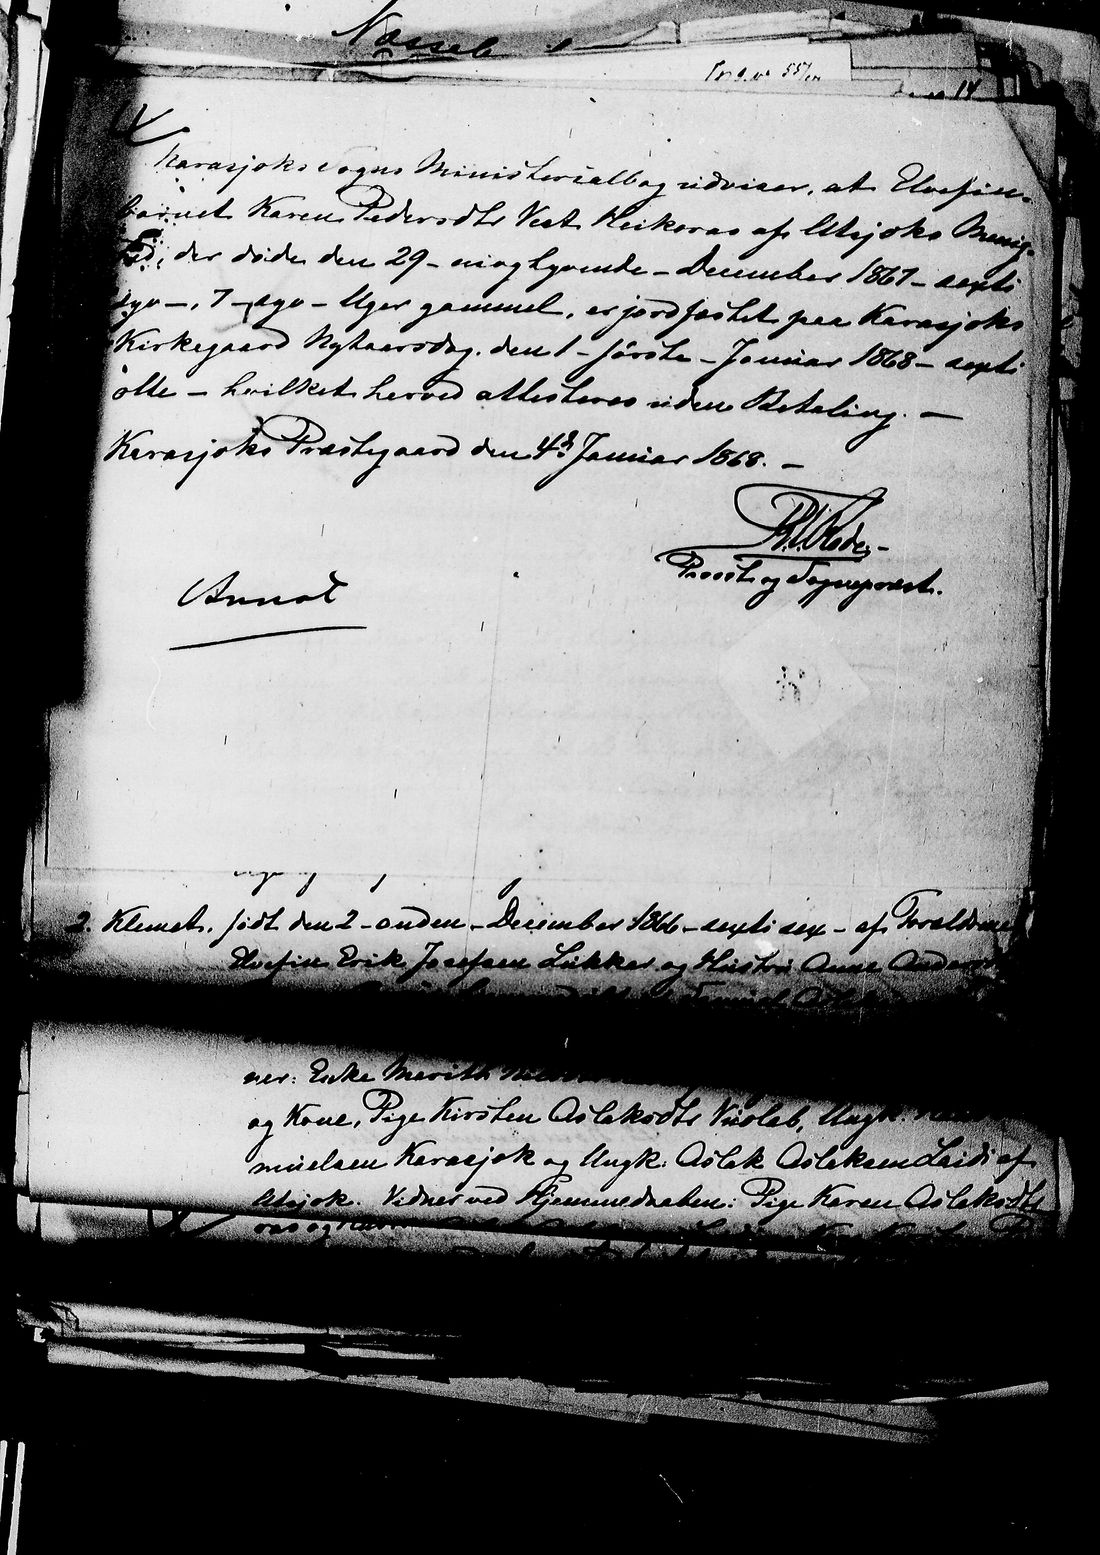 14
Karasjoks Sogns Ministerialbog udviser, at Elvefin-
barnet Karen Pedersdtr Vest Heikoras af Utsjoks Menig-
hed, der døde den 29 - niogtyvende - December 1867 - sexti
syv -, 7 - syv - Uger gammel, er jordfæstet paa Karasjoks
Kirkegaard Nytaarsdag den 1 - første - Januar 1868 - sexti
otte - hvilket herved attesteres uden Betaling. -
Karasjoks Præstegaard den 4de Januar 1868. -
Provst og Sognepræst.
Annat
2. Klemet, født den 2 - anden - December 1866 - sexti sex - af Forældrene
Elvefin Erik Josefsen Lukkar og Hustru Anne Anders
ner: Enke Marith
og Kone, Pige Kirsten Aslaksdtr Vuolab, Ungk:
muelsen Karasjok og Ungk: Aslak Aslaksen Laiti af
Utsjok. Vidner ved Hjemmedaaben: Pige Karen Aslaksdtr